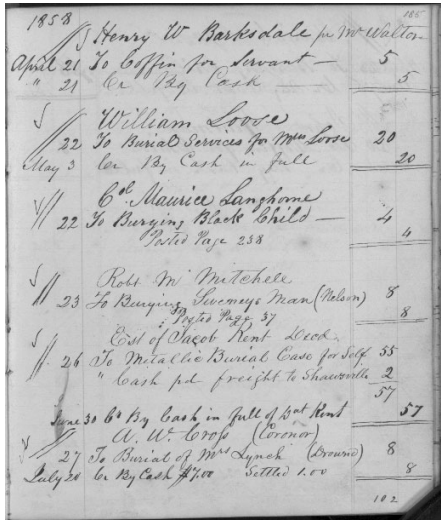 1858 185
Henry W Barksdale pr Mr Walton
April 21 To Coffin for Servant — 5
" 21 Cr By Cash — 5
William Loose
22 To Burial Services for Mrs Loose 20
May 3 Cr By Cash in full 20
Col Maurice Langhorne
22 To Burying Black Child — 4
Posted Page 238 4
Robt M Mitchell
23 To Burying Man (Nelson) 8
Posted Page 37 8
Est of Jacob Kent Decd
26 To Metallic Burial Case for Self 55
" Cash pd freight to Shawsville 2
57
June 30 Cr By Cash in full of Kent 57
A. W. Cross (Coronor)
27 To Burial of Mrs Lynch (Drownd) 8
July 20 Cr By Cash $7.00 Settled 1.00 8
102